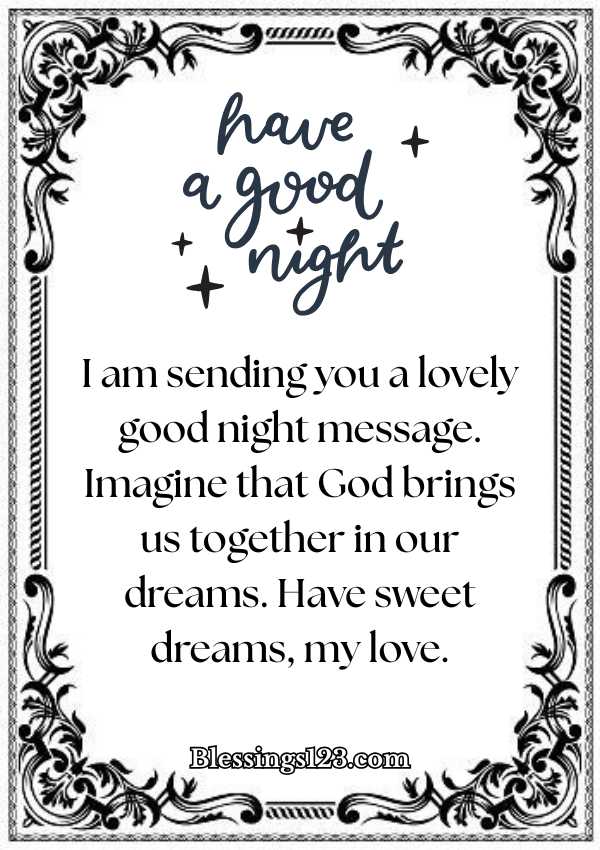 have
a good
night
I am sending you a lovely
good night message.
Imagine that God brings
us together in our
dreams. Have sweet
dreams, my love.
Blessings123.com